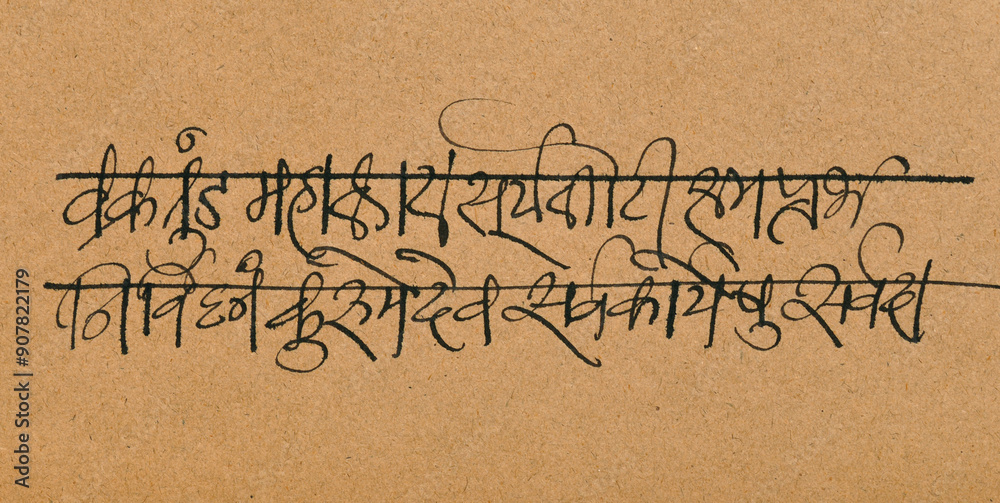 वक्रतुंड महाकाय सूर्यकोटी समप्रभ
निर्विघ्नं कुरुमेदेव सर्वकार्येषु सर्वदा
Adobe Stock | #907822179